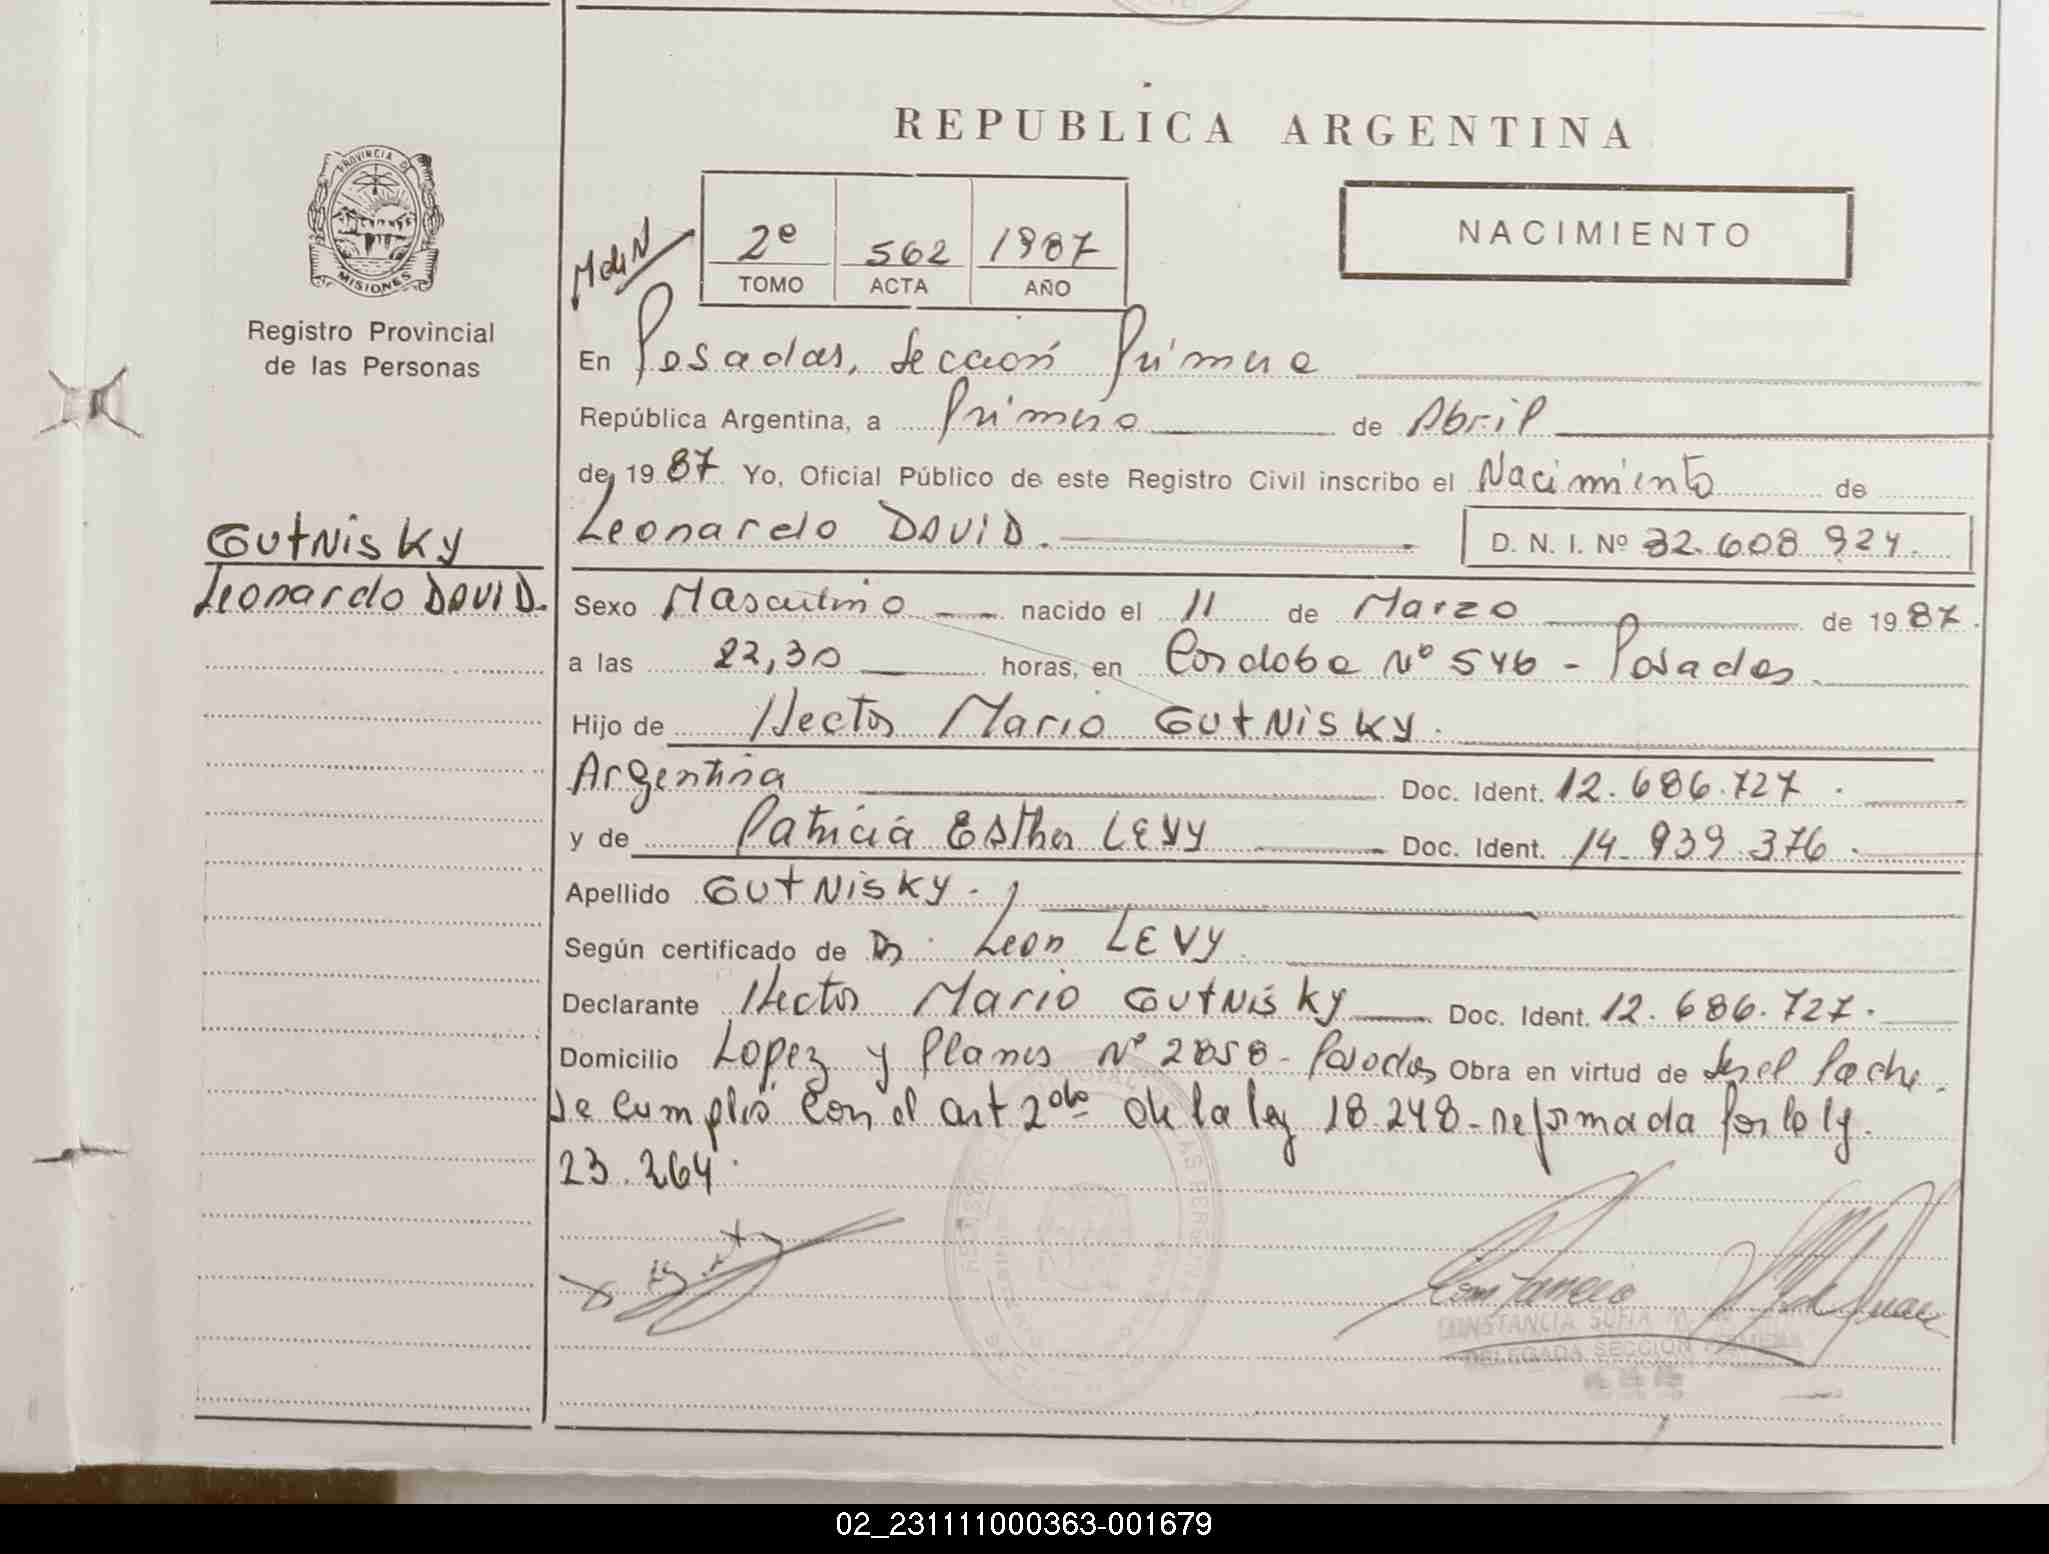 REPUBLICA ARGENTINA
PROVINCIA DE
MISIONES
Registro Provincial
de las Personas
2º 562 1987
TOMO ACTA AÑO
NACIMIENTO
En Posadas, Sección Primera
República Argentina, a Primero de Abril
de 1987 Yo, Oficial Público de este Registro Civil inscribo el Nacimiento de
Leonardo DAVID. D. N. I. Nº 32.608.924.
GUtNisKy
Leonardo DAVID.
Sexo Masculino nacido el 11 de Marzo de 1987.
a las 22,30 horas, en Cordoba Nº 546 - Posadas.
Hijo de Hector Mario GUtNisKy.
Argentina Doc. Ident. 12.686.727.
y de Patricia Esther LEVY Doc. Ident. 14.939.376.
Apellido GUtNisKy.
Según certificado de Dr. Leon LEVY.
Declarante Hector Mario GUtNisKy Doc. Ident. 12.686.727.
Domicilio Lopez y Planes Nº 2858 - Posadas Obra en virtud de Ser el Padre.
Se cumplió con el art 2do de la ley 18.248 - reformada por la ley.
23.264.
CONSTANCIA SOFIA
DELEGADA SECCION PRIMERA
02_231111000363-001679